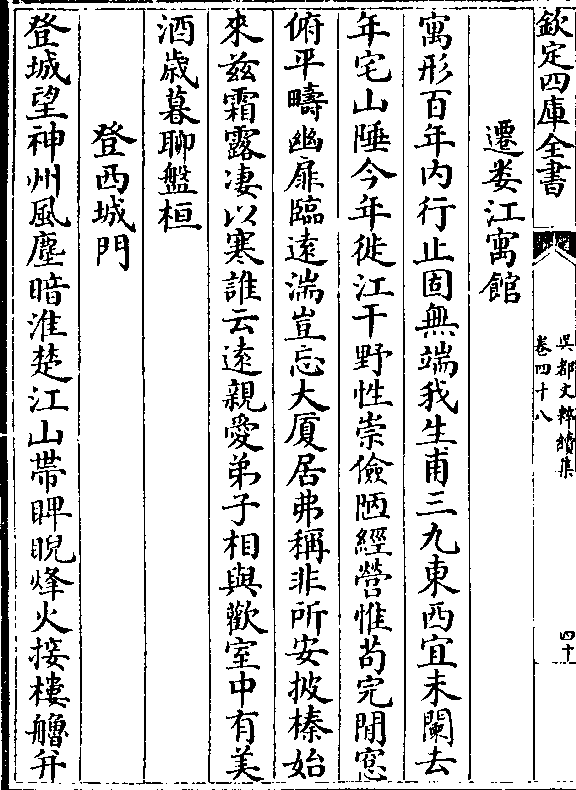 欽定四庫全書
吳都文粹續集
卷四十八
四十
遷婁江寓館
寓形百年内行止固無端我生甫三九東西宜未闌去
年宅山陲今年徙江干野性崇儉陋經營惟茍完閒窓
俯平疇幽扉臨遠湍豈忘大厦居弗稱非所安披榛始
來兹霜露凄以寒誰云遠親愛弟子相與歡室中有美
酒歲暮聊盤桓
登西城門
登城望神州風塵暗淮楚江山帶睥睨烽火接樓艣并